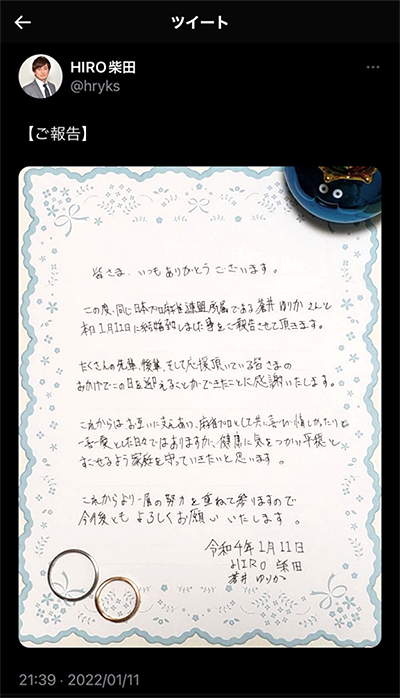 ツイート
HIRO柴田
@hryks
【ご報告】
皆さま、いつもありがとうございます。
この度、同じ日本プロ麻雀連盟所属である蒼井ゆりかさんと
本日1月11日に結婚致しました事をご報告させて頂きます。
たくさんの先輩、後輩、そして応援頂いている皆さまの
おかげでこの日を迎えることができたことに感謝いたします。
これからはお互いに支えあい、麻雀プロとして共に喜び悔しがったりと
一喜一憂とした日々ではありますが、健康に気をつかい平穏に
すごせるよう家庭を守っていきたいと思います。
これからより一層の努力を重ねて参りますので
今後ともよろしくお願いいたします。
令和4年1月11日
HIRO 柴田
蒼井ゆりか
21:39 · 2022/01/11